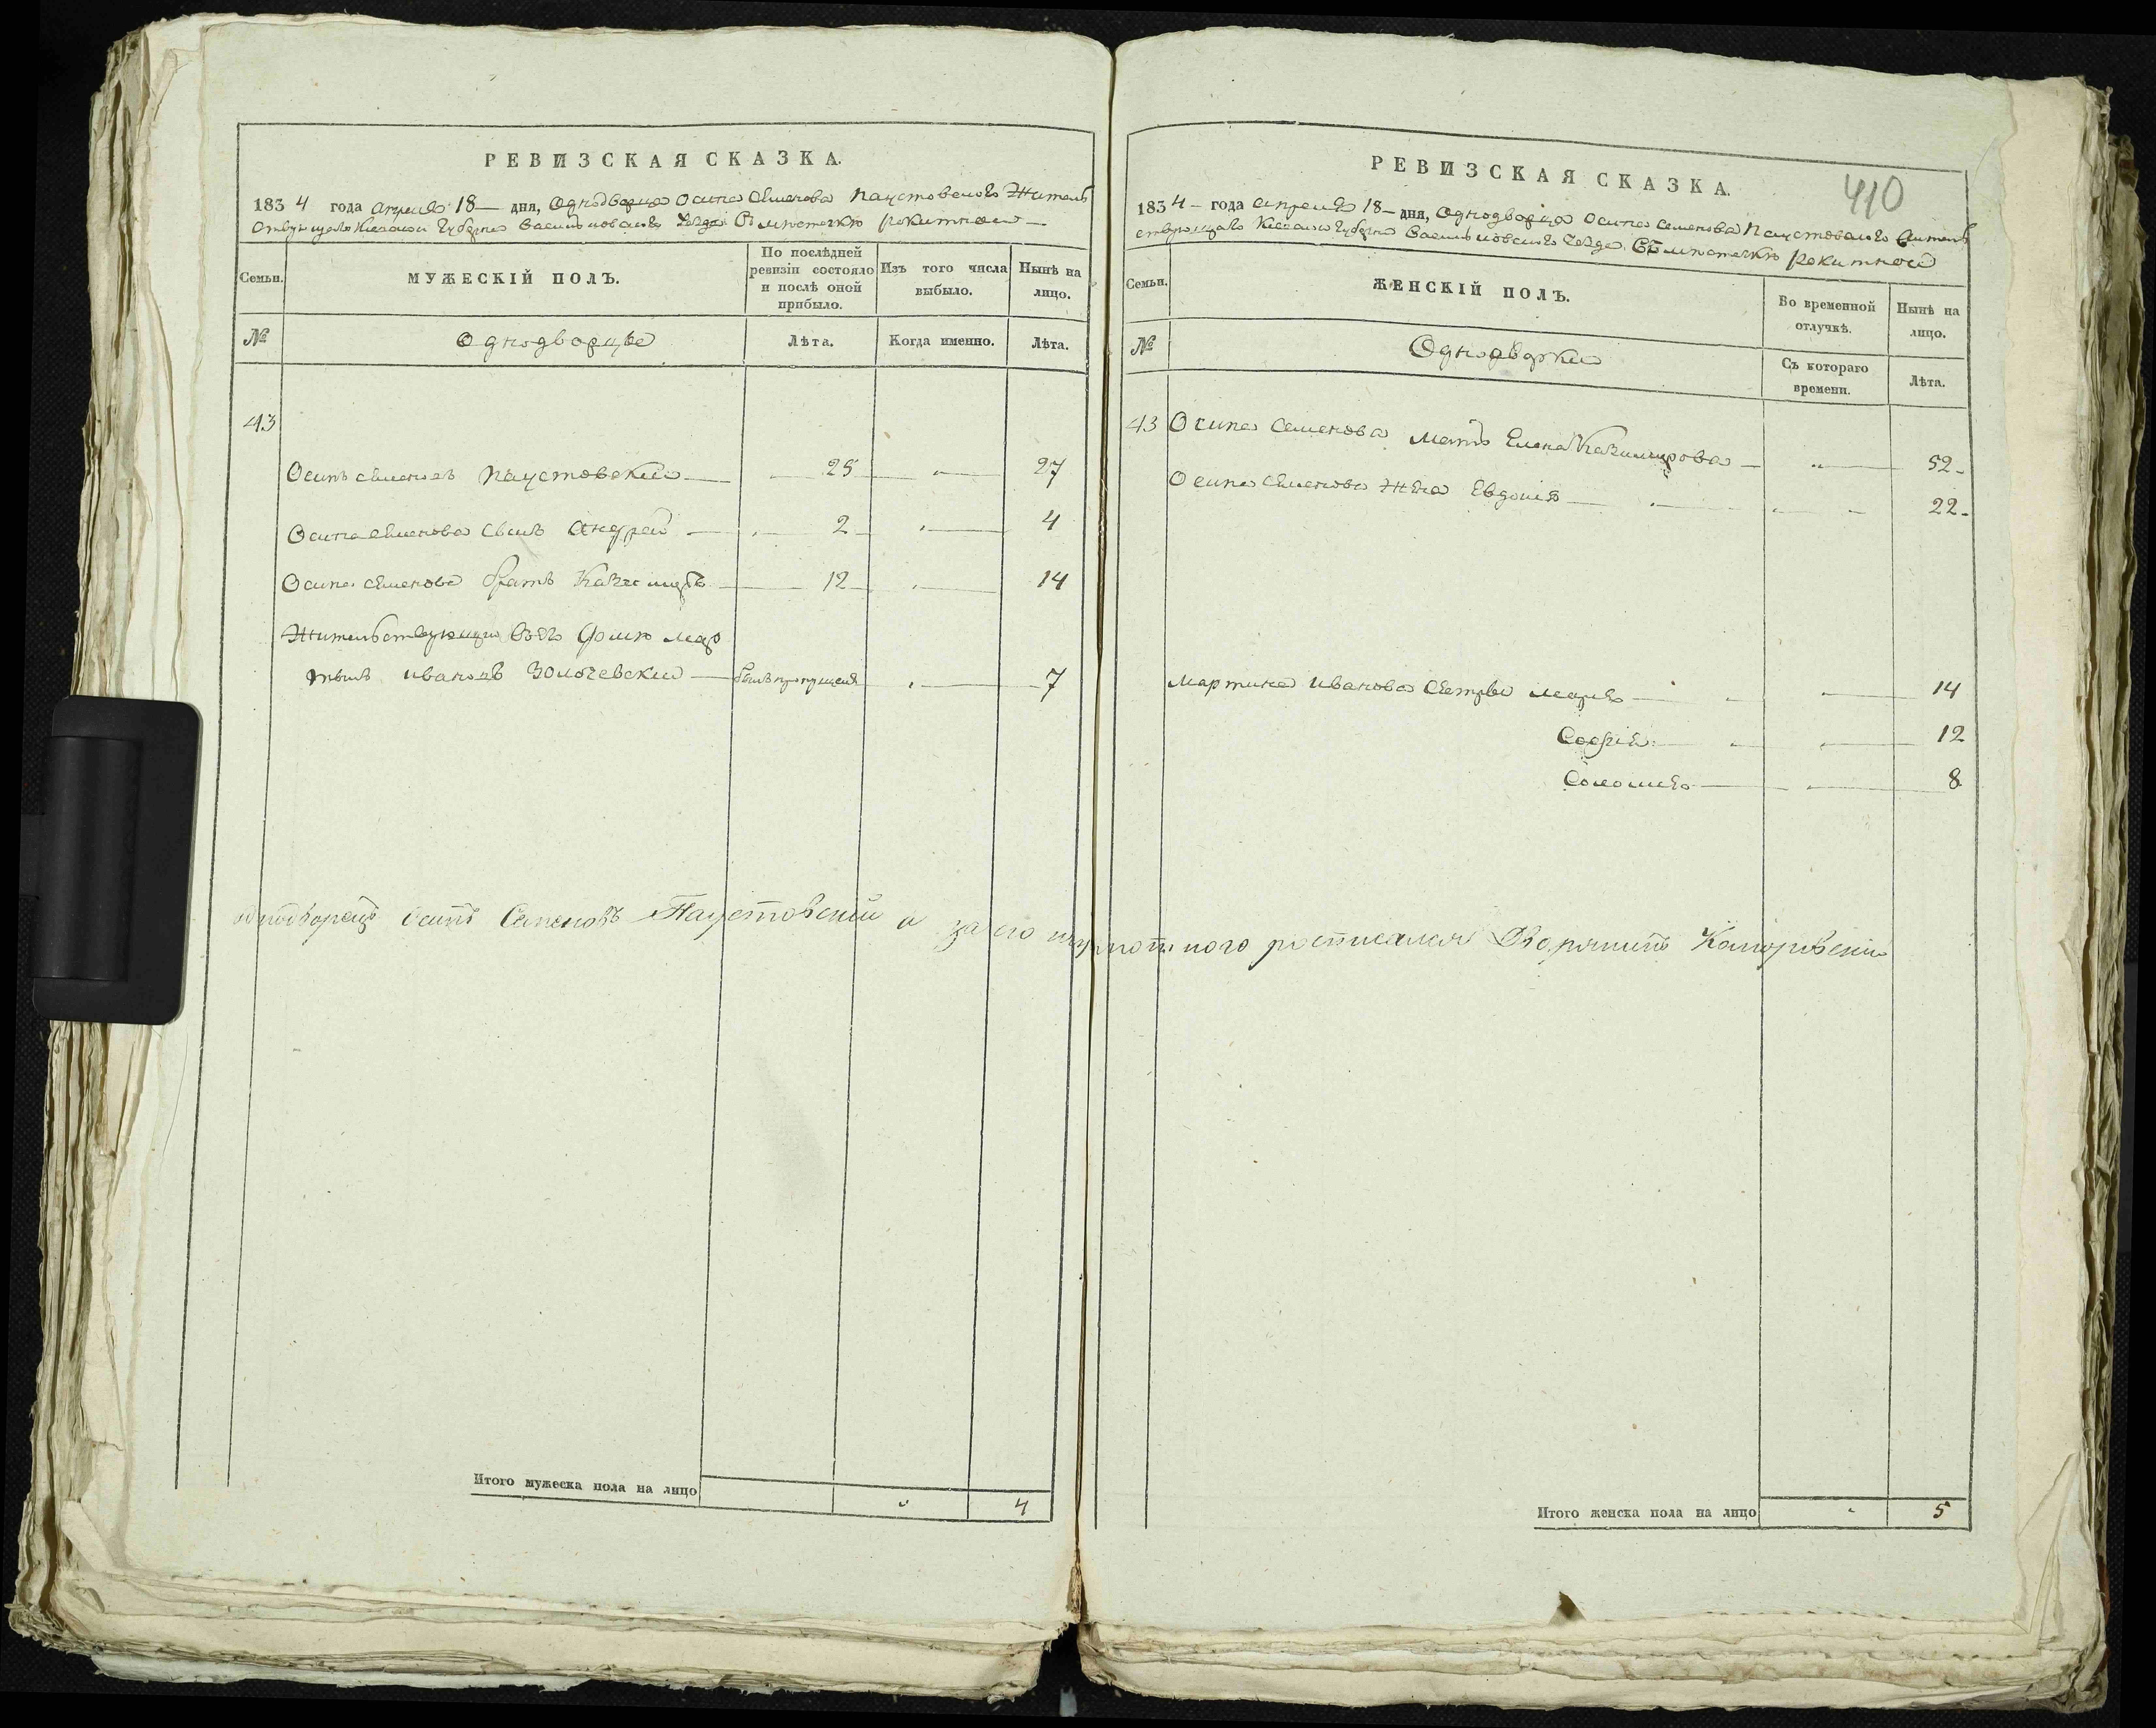 РЕВИЗСКАЯ СКАЗКА.
1834 года апреля 18 дня, Однодворца Осипа Семенова Паустовского Житель
ствующаго Киевской Губерни Васильковского Уезда В местечкѣ Рокитном
Семьи.
МУЖЕСКІЙ ПОЛЪ.
По послѣдней ревизіи состояло и послѣ оной прибыло.
Изъ того числа выбыло.
Нынѣ на лицо.
№
Однодворцы
Лѣта.
Когда именно.
Лѣта.
43
Осипъ Семеновъ Паустовский 25 " 27
Осипа Семенова Сынъ Андрей 2 " 4
Осипа Семенова братъ Казимиръ 12 " 14
Жительствующи Мар
тынъ Ивановъ Золочевский былъ пропущенъ " 7
однодворецъ Осипъ Семеновъ Паустовский а за его неграмотного росписался Дворянинъ
Итого мужеска пола на лицо " 4
410
РЕВИЗСКАЯ СКАЗКА.
1834 года апреля 18 дня, Однодворца Осипа Семенова Паустовского Житель
ствующаго Киевской Губерни Васильковского Уезда Въ местечкѣ Рокитном
Семьи.
ЖЕНСКІЙ ПОЛЪ.
Во временной отлучкѣ.
Нынѣ на лицо.
№
Однодворки
Съ котораго времени.
Лѣта.
43 Осипа Семенова мать Елена Казимирова " 52
Осипа Семенова Жена Евдокия " 22
Мартина Иванова Сестры Мария " 14
София " 12
Соломия " 8
Итого женска пола на лицо " 5